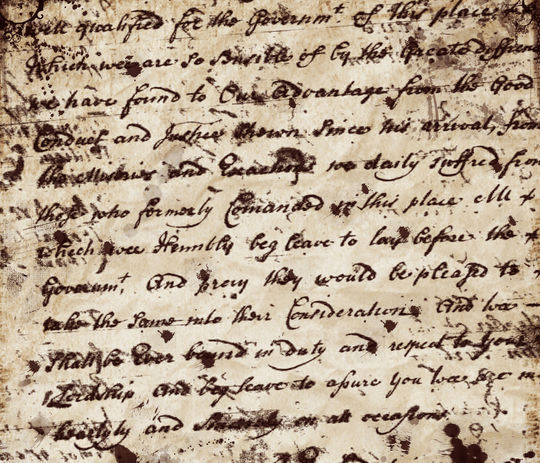 well qualified for the Governmt. of this place
which wee are so sensible of by the Greate
we have found to Our advantage from the Good
Conduct and Justice shewn Since his arrival, from
the and we daily suffred from
those who formerly Comanded in this place All
which wee Humbly beg leave to lay before the
Governmt. And pray they would be pleased to
take the Same into their Consideration And
Shall be Ever bound in duty and respect to Your
Lordship, And beg leave to assure you wee are
and on all occasions